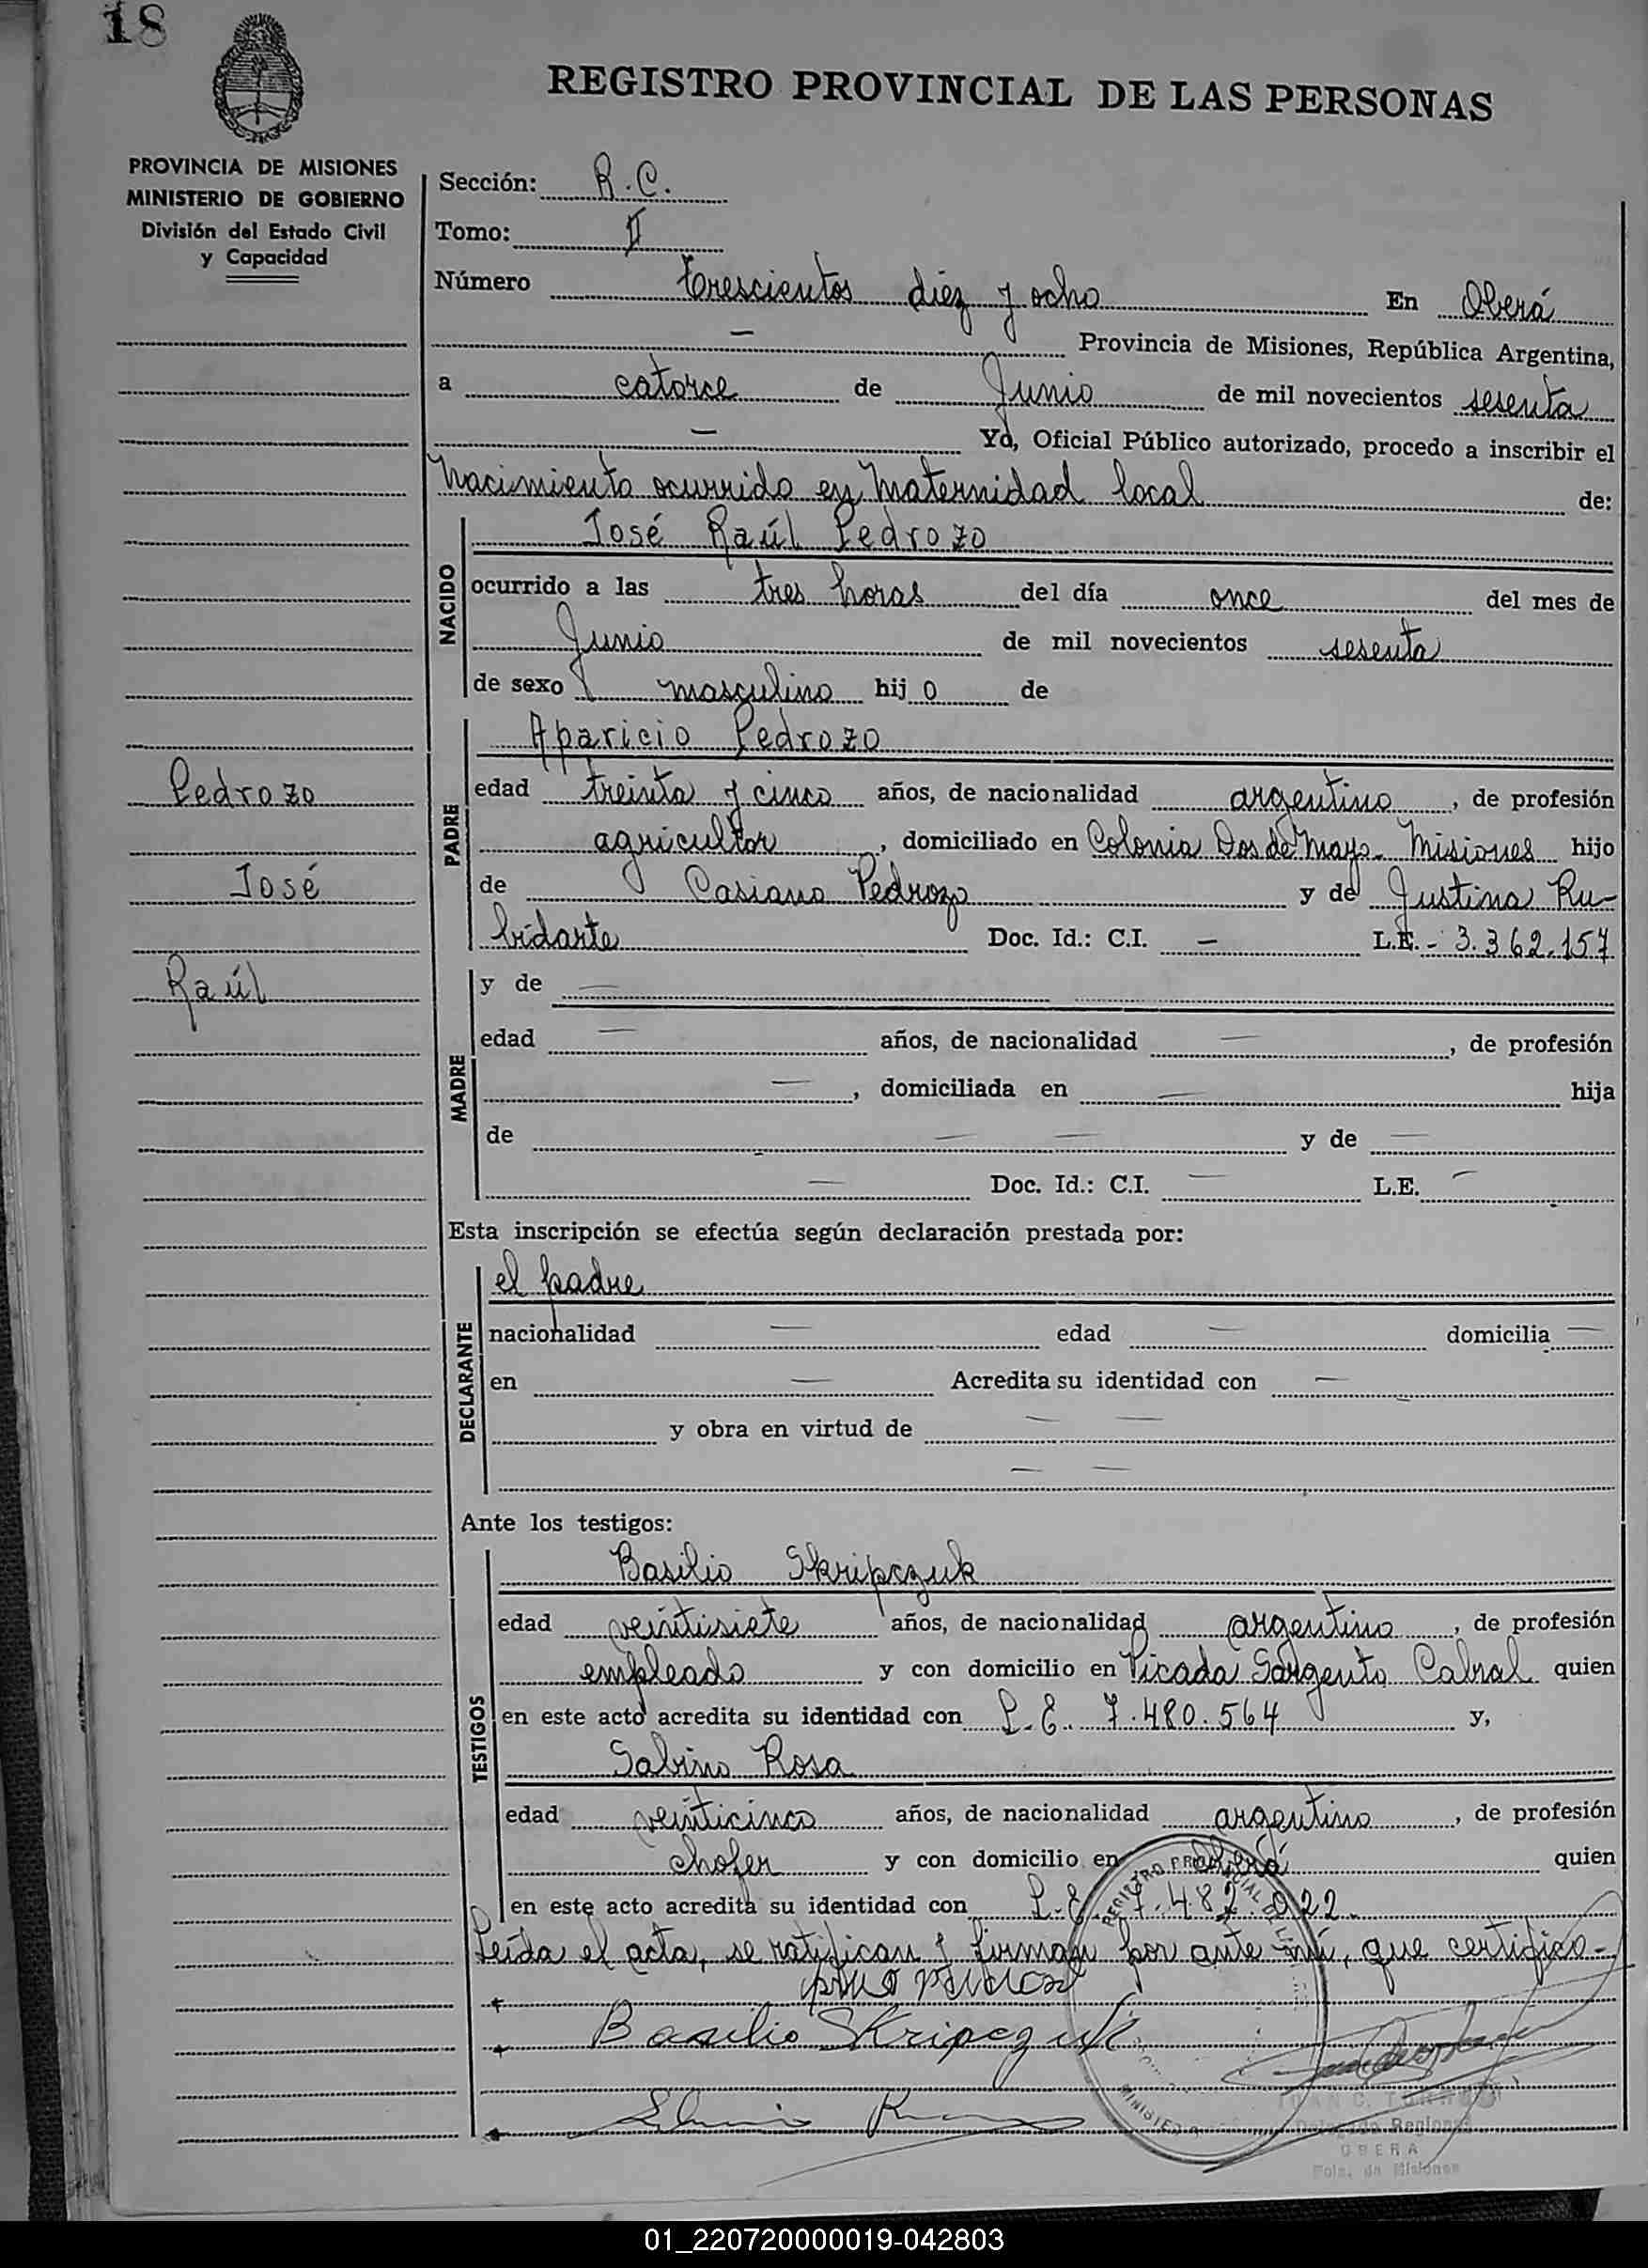 18
REGISTRO PROVINCIAL DE LAS PERSONAS
PROVINCIA DE MISIONES
MINISTERIO DE GOBIERNO
División del Estado Civil
y Capacidad
Sección: R.C.
Tomo: II
Número trescientos diez y ocho En Oberá
— Provincia de Misiones, República Argentina,
a catorce de Junio de mil novecientos sesenta
— Yo, Oficial Público autorizado, procedo a inscribir el
nacimiento ocurrido en Maternidad local de:
NACIDO
José Raúl Pedrozo
ocurrido a las tres horas del día once del mes de
Junio de mil novecientos sesenta
de sexo masculino hijo de
PADRE
Aparicio Pedrozo
edad treinta y cinco años, de nacionalidad argentino, de profesión
agricultor, domiciliado en Colonia Dos de Mayo - Misiones hijo
de Casiano Pedrozo y de Justina Ru-
bidarte Doc. Id.: C.I. — L.E. - 3.362.157
Pedrozo
José
Raúl
MADRE
y de —
edad — años, de nacionalidad —, de profesión
—, domiciliada en — hija
de — — y de —
— Doc. Id.: C.I. — L.E. —
Esta inscripción se efectúa según declaración prestada por:
DECLARANTE
el padre
nacionalidad — edad — domicilia —
en — Acredita su identidad con —
y obra en virtud de — —
— —
Ante los testigos:
TESTIGOS
Basilio Skripczuk
edad veintisiete años, de nacionalidad argentino, de profesión
empleado y con domicilio en Picada Sargento Cabral quien
en este acto acredita su identidad con L.E. 7.480.564 y,
Sabino Rosa
edad veinticinco años, de nacionalidad argentino, de profesión
chofer y con domicilio en Oberá quien
en este acto acredita su identidad con L.E. 7.482.922.
Leída el acta, se ratifican y firman por ante mí, que certifico-
Basilio Skripczuk
Delegado Regional
OBERA
Pcia. de Misiones
01_220720000019-042803